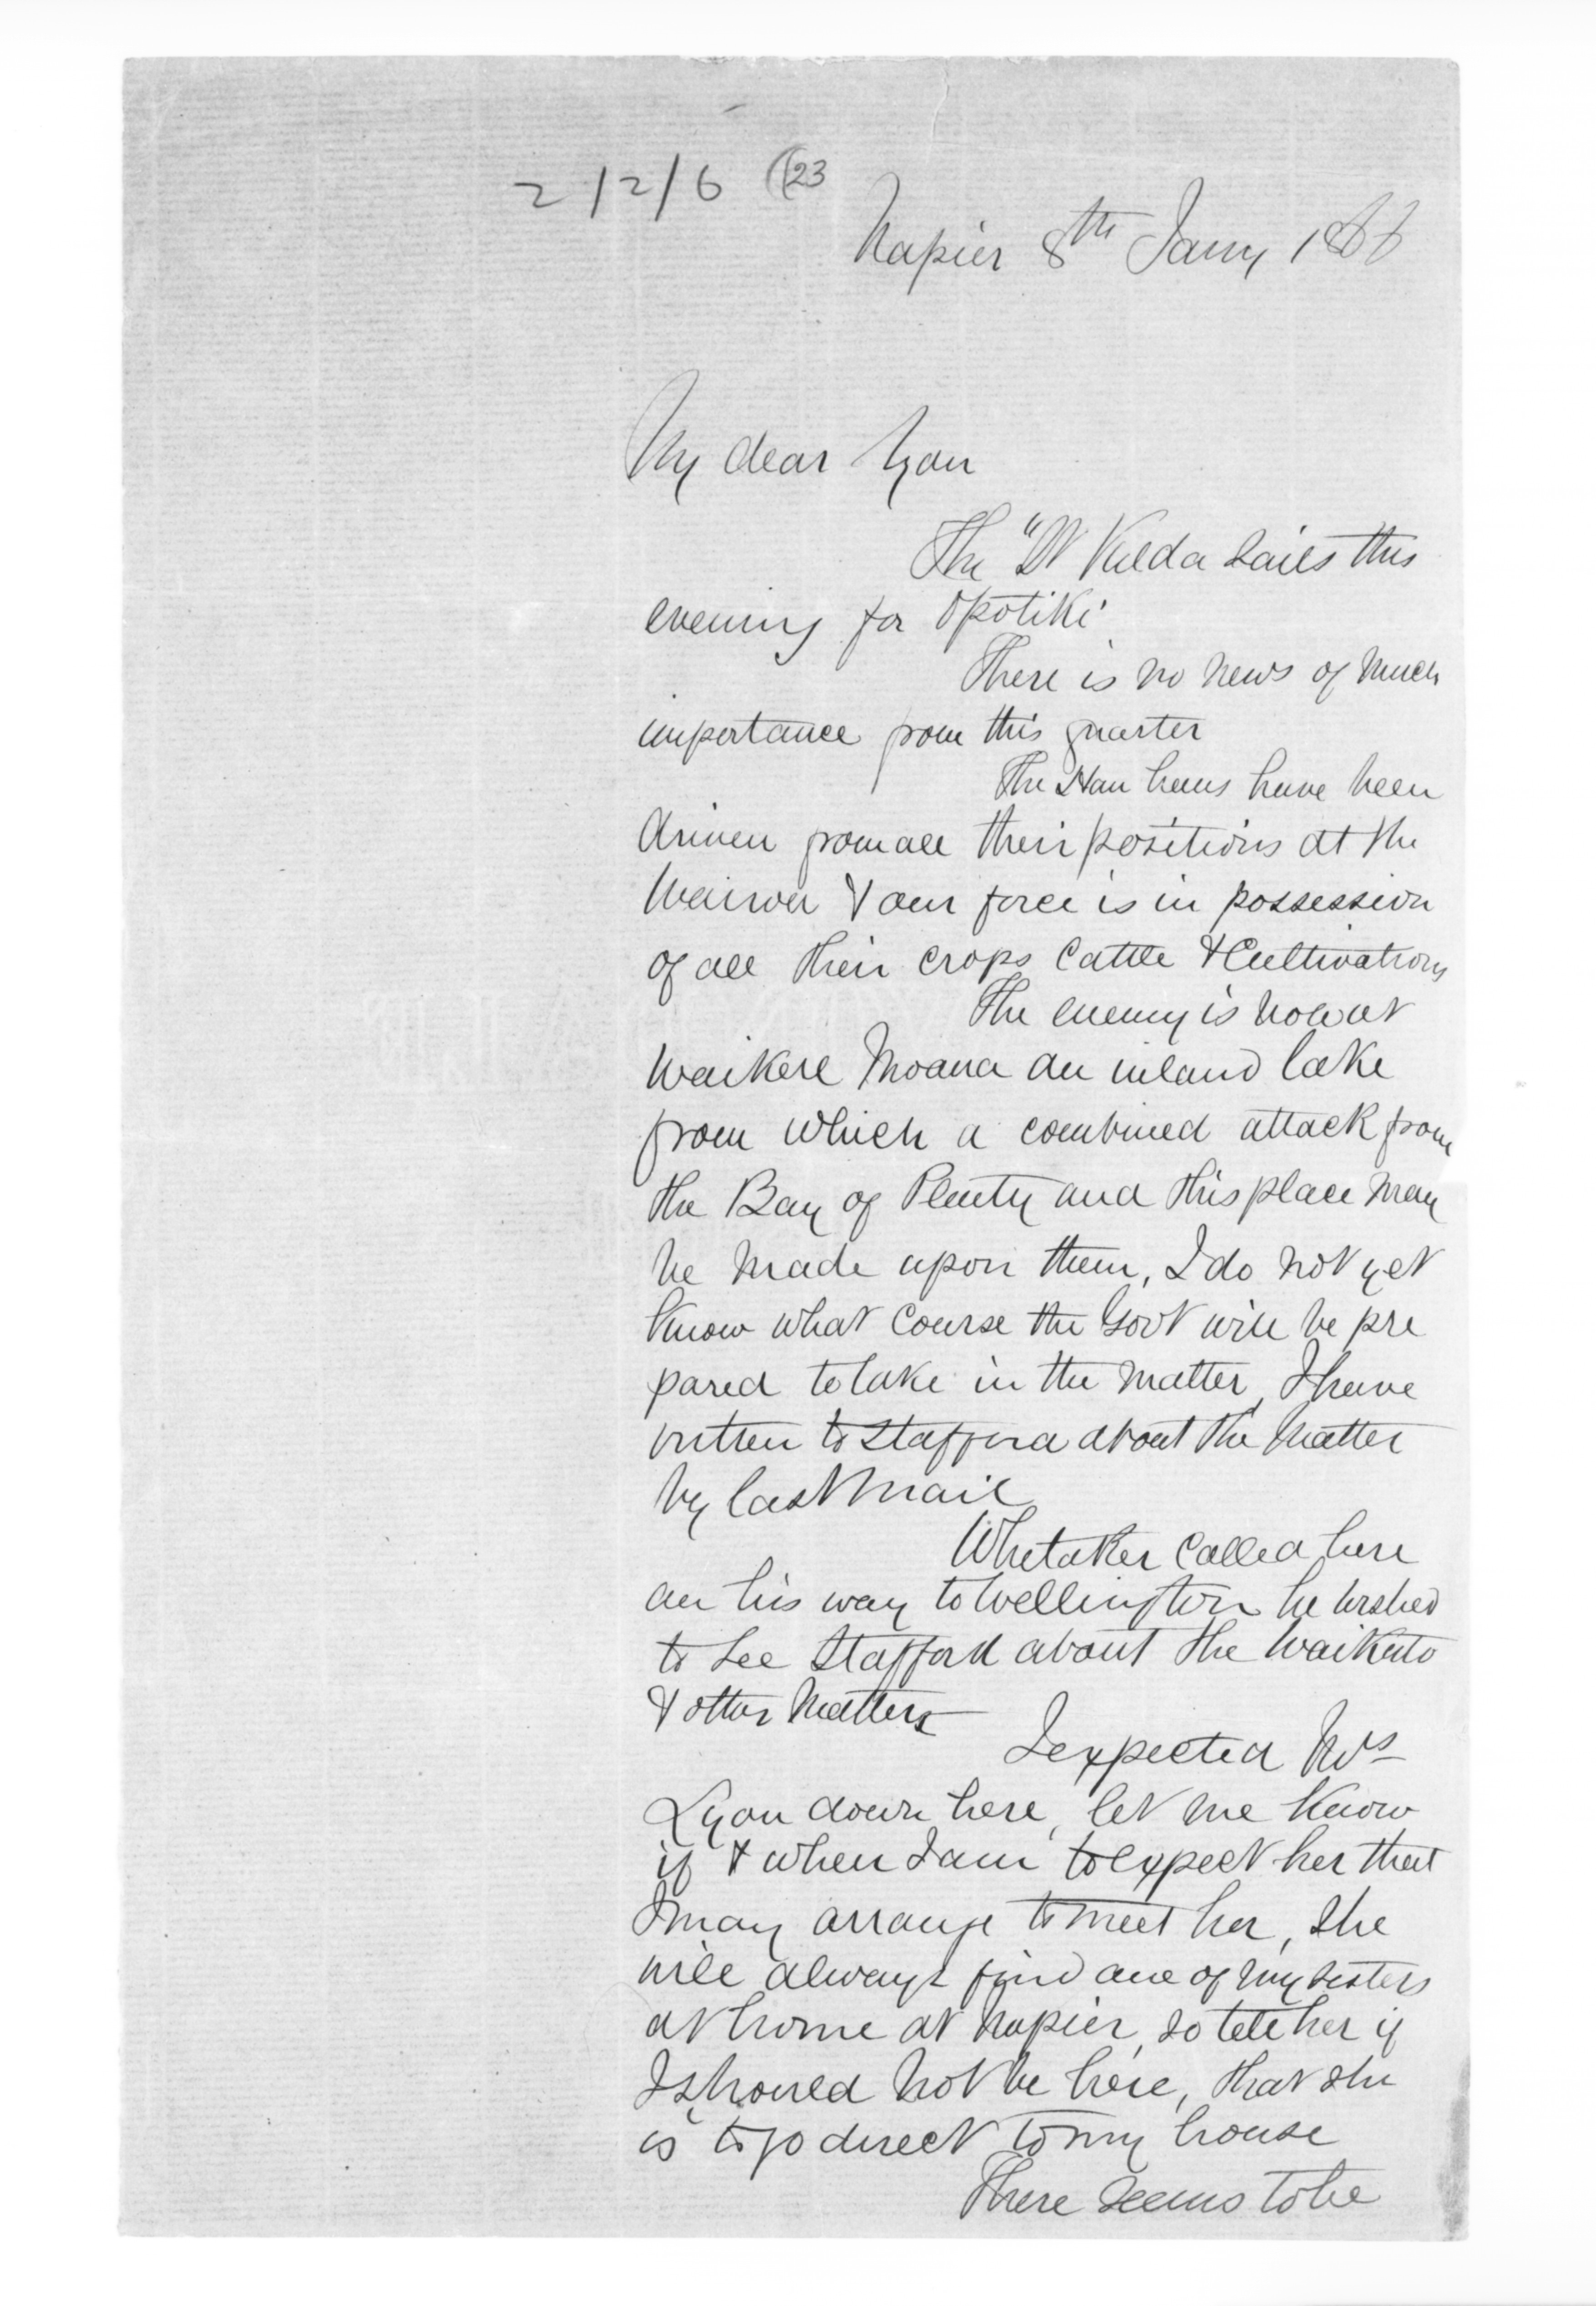 2/2/6 (23
Napier 8th Jany 1866
My dear Lyon
The "St Kilda sails this
evening for Opotiki
There is no news of much
importance from this quarter
The Hau haus have been
driven from all their positions at the
Wairoa & our force is in possession
of all their crops Cattle & Cultivations
The enemy is now at
Waikere Moana an inland lake
from which a combined attack from
the Bay of Plenty and this place may
be made upon them, I do not yet
know what course the Govt will be pre
pared to take in the matter, I have
written to Stafford about the matter
by last mail
Whitaker called here
on his way to Wellington he wished
to see Stafford about the Waikato
& other matters
I expected Mrs
Lyon down here, let me know
if & when I am to expect her that
I may arrange to meet her, she
will always find one of my sisters
at home at Napier, so tell her if
I should not be here, that she
is to go direct to my house
There seems to be